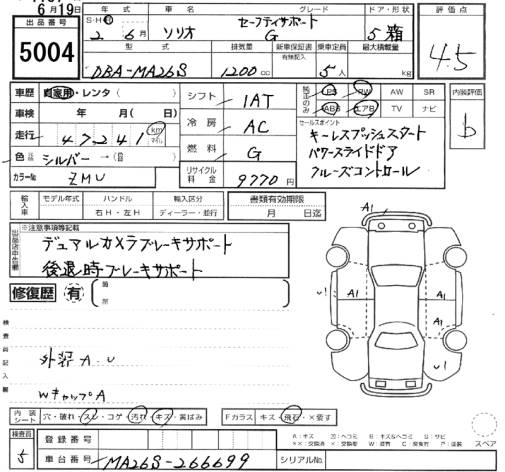 6月19日
出品番号
5004
年
車名
グレード
ドア・形状
評価点
S・H・R 2年 6月
ソリオ
セーフティサポート
G
5 箱
4.5
型式
排気量
新車保証書
有無記入
乗車定員
最大積載量
DBA-MA26S
1200 cc
5人
kg
車歴 自家用・レンタ ( )
シフト
1AT
純正のみ
PS PW AW SR
ABS エアB TV ナビ
内装評価
b
車検 年 月( 日)
冷房
AC
セールスポイント
キーレスプッシュスタート
パワースライドドア
クルーズコントロール
走行 47,241 km マイル
燃料
G
色 シルバー → ( )
カラーNo ZMU
リサイクル料金
9770円
輸入車
モデル年式
ハンドル
右H・左H
輸入区分
ディーラー・並行
書類有効期限
月 日迄
出品店申告欄
※注意事項等記載
デュアルカメラブレーキサポート
後退時ブレーキサポート
修復歴 有
箇所
検査員記入欄
外装 A.U
WキャップA
A1
U1
A1
A1
A1
U1
内装シート
穴・破れ・スレ・コゲ・汚れ・キズ・黄ばみ
Fガラス キズ・飛石・×要す
スペア
検査員
5
登録番号
車台番号
MA26S-266699
シリアルNo.